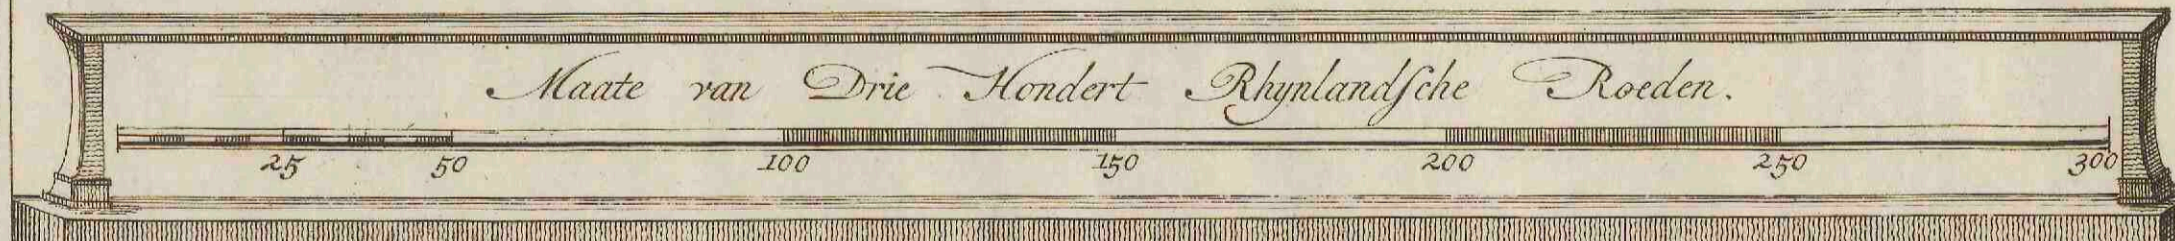 Maate van Drie Hondert Rhynlandsche Roeden.
25 50 100 150 200 250 300